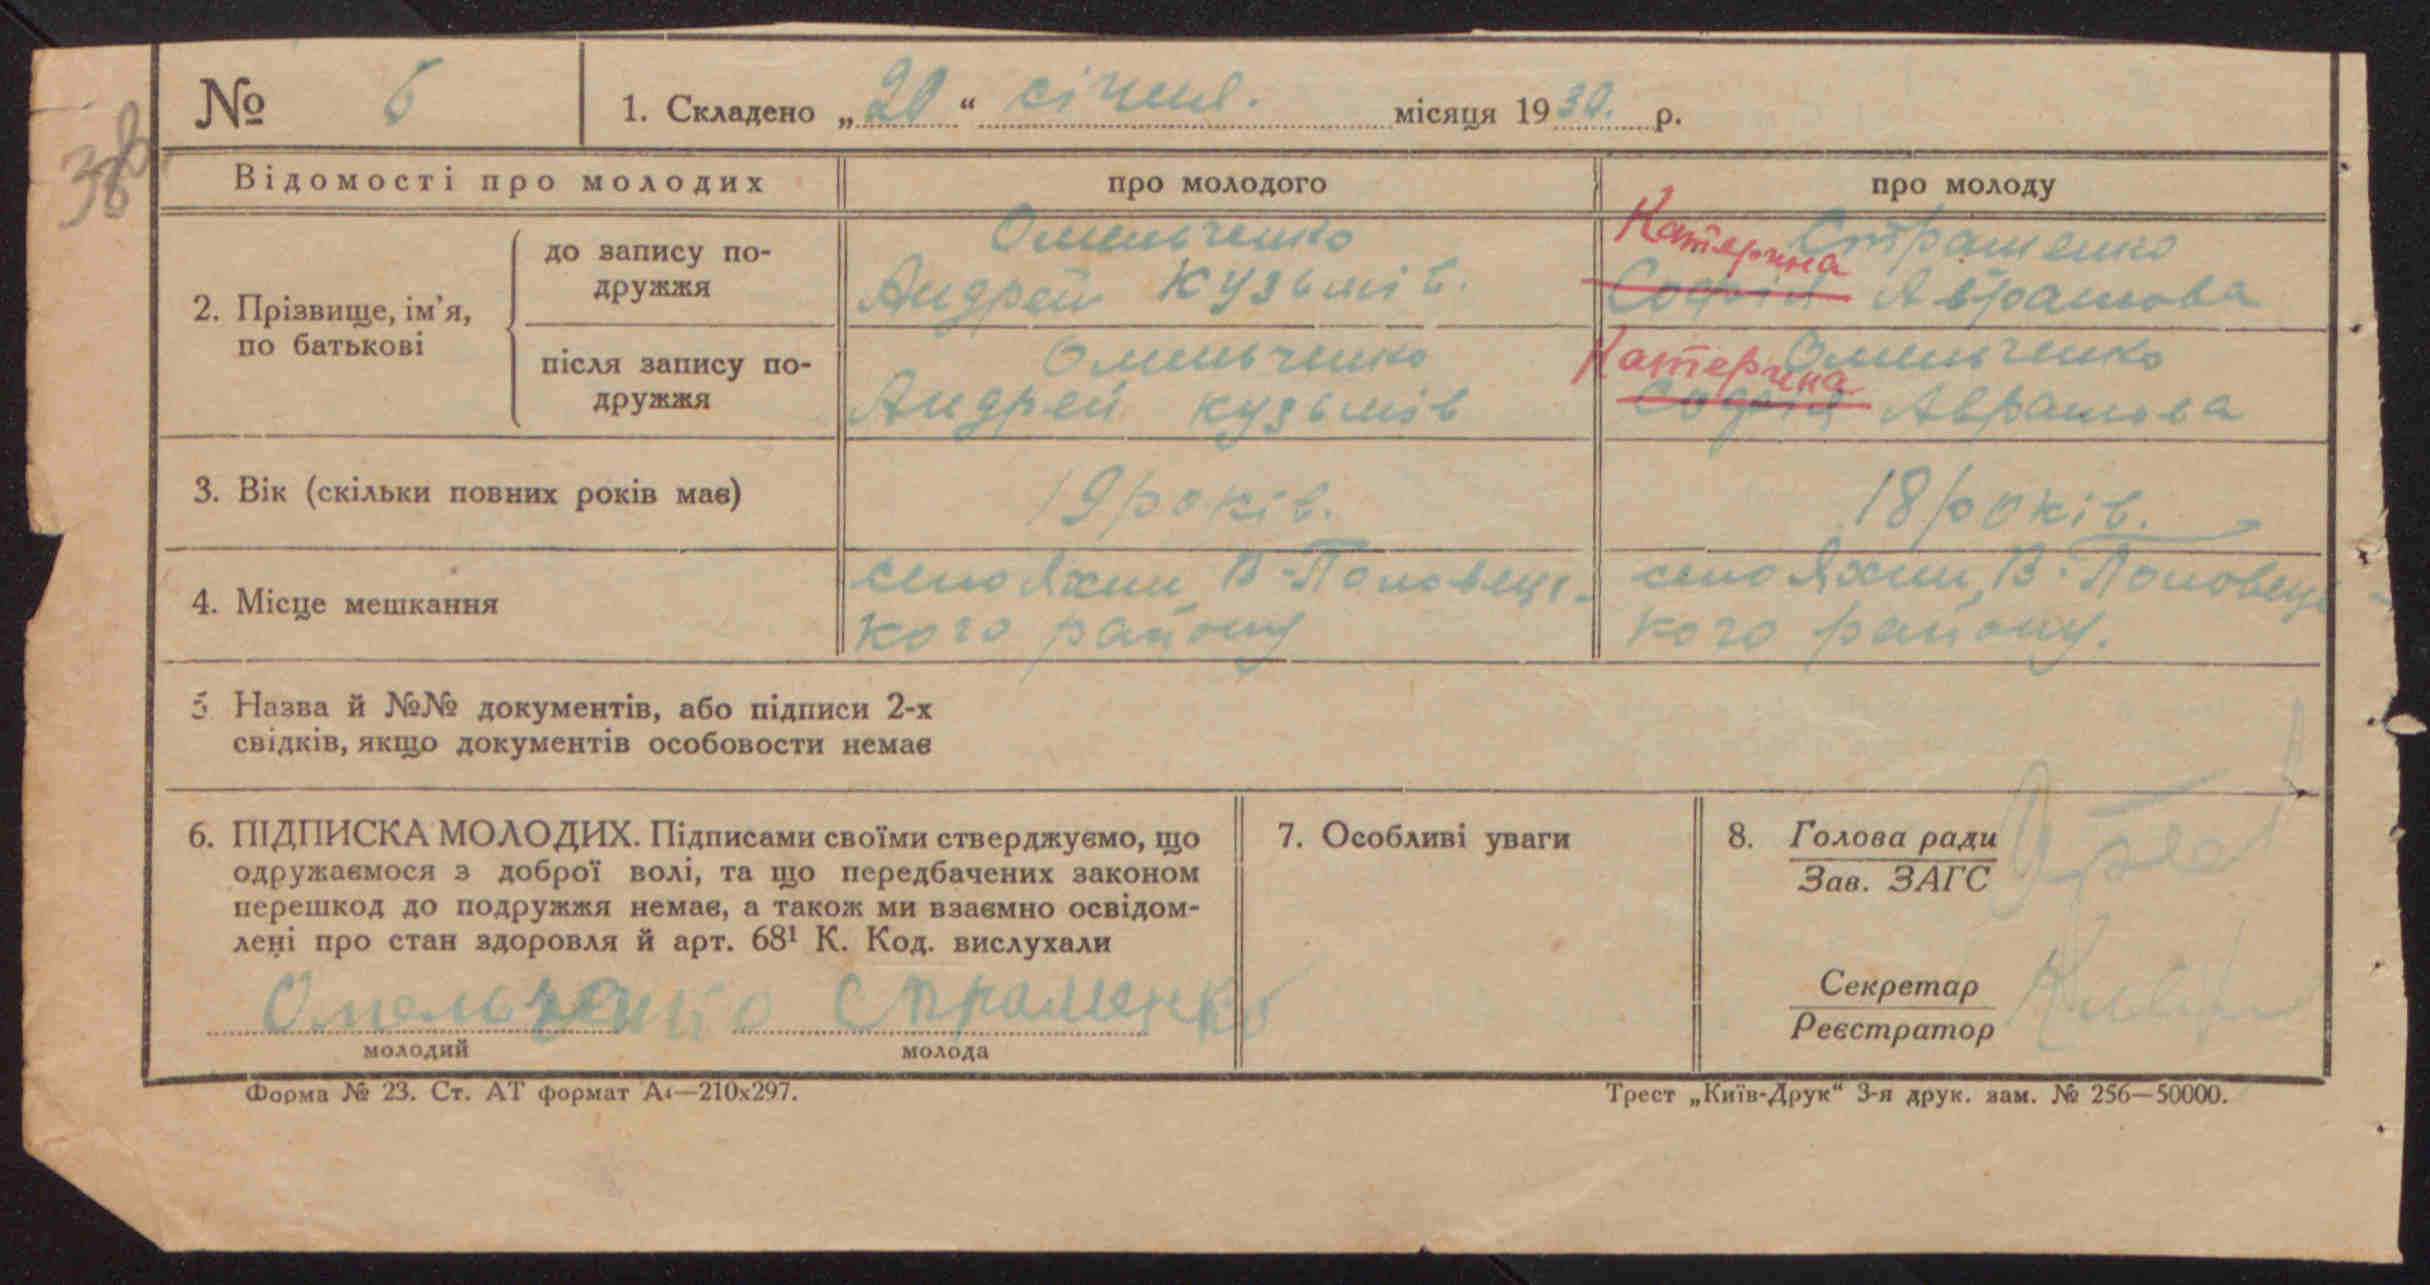 № 6
1. Складено „20“ січня. місяця 1930. р.
38.
Відомості про молодих
про молодого
про молоду
2. Прізвище, ім’я,
по батькові
до запису по-
дружжя
Омельченко
Андрей Кузьмів.
Катерина Страшенко
Софія Аврамова
після запису по-
дружжя
Омельченко
Андрей Кузьмів
Катерина Омельченко
Софія Аврамова
3. Вік (скільки повних років має)
19 років.
18 років.
4. Місце мешкання
село Яхни, В-Половець-
кого району
село Яхни, В-Половець-
кого району.
5 Назва й №№ документів, або підписи 2-х
свідків, якщо документів особовости немає
6. ПІДПИСКА МОЛОДИХ. Підписами своїми стверджуємо, що
одружаємося з доброї волі, та що передбачених законом
перешкод до подружжя немає, а також ми взаємно освідом-
лені про стан здоровля й арт. 68¹ К. Код. вислухали
Омельченко
молодий
Страшенко
молода
7. Особливі уваги
8. Голова ради
Зав. ЗАГС
Секретар
Реєстратор
Форма № 23. Ст. АТ формат А4—210х297.
Трест „Київ-Друк“ 3-я друк. зам. № 256—50000.